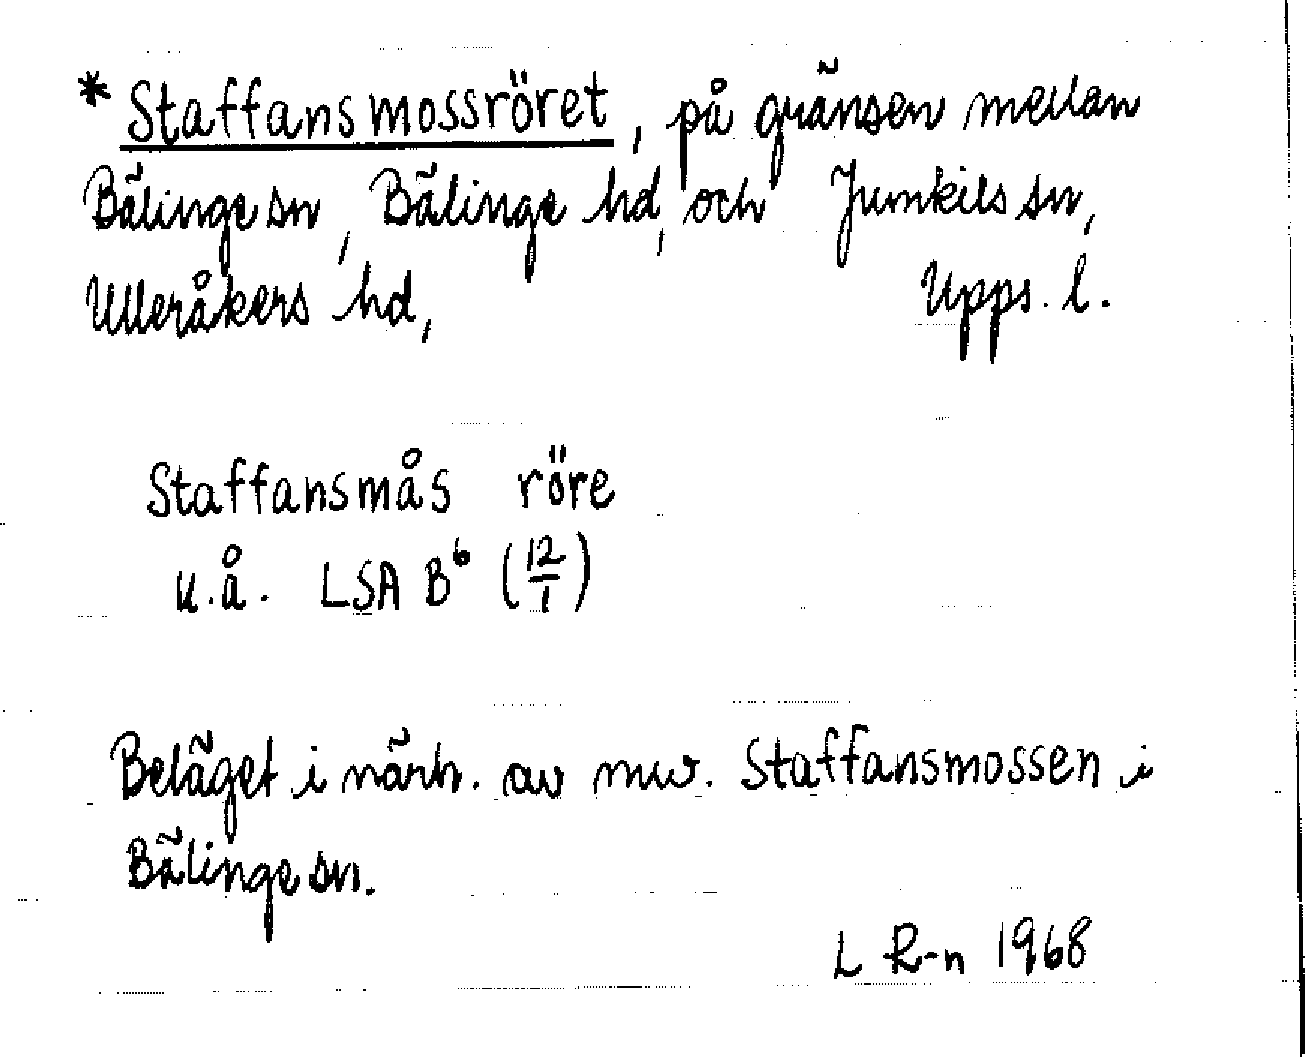 * Staffansmossröret, på gränsen mellan
Bälinge sn, Bälinge hd, och Jumkils sn,
Ulleråkers hd, Upps. l.
Staffansmås röre
u.å. LSA B⁶ (12/1)
Beläget i närh. av nuv. Staffansmossen i
Bälinge sn.
L R-n 1968